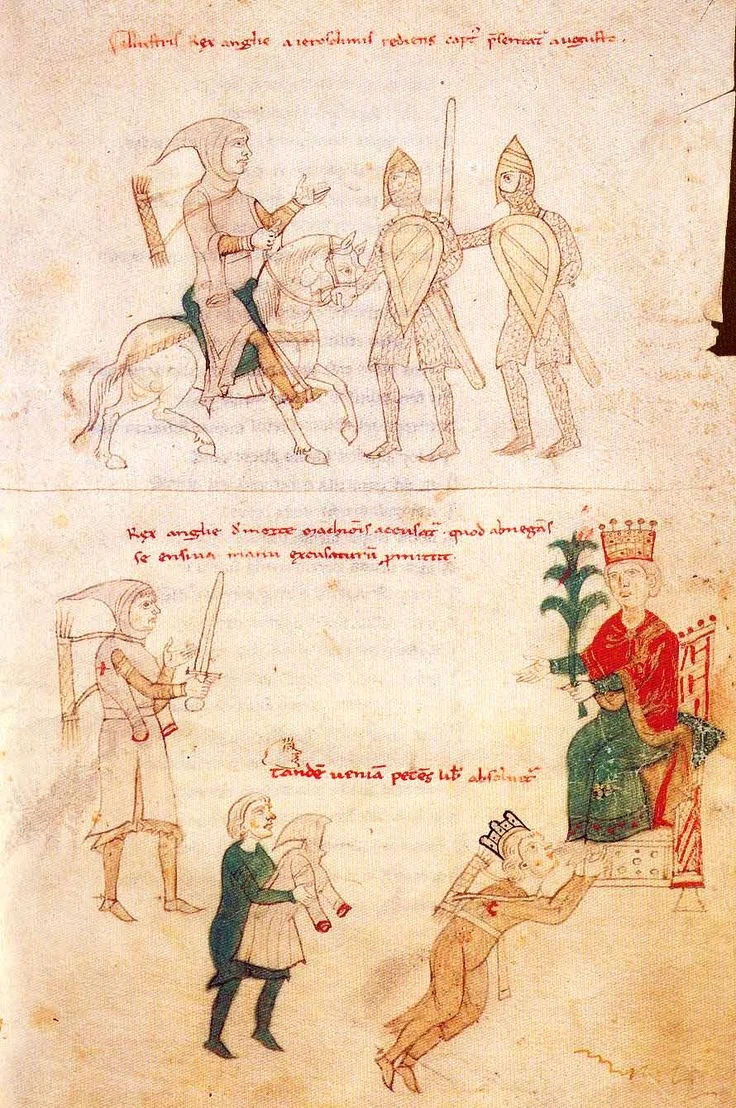 Illustris Rex anglie a ierosolimis rediens capt᷑ p̄sentat᷑ augusto.
Rex anglie de morte Marchiōis accusat᷑. quod abnegās
se ensiua manu excusaturū ꝓmittit.
Tandē ueniā petēs lib̄ absoluit᷑